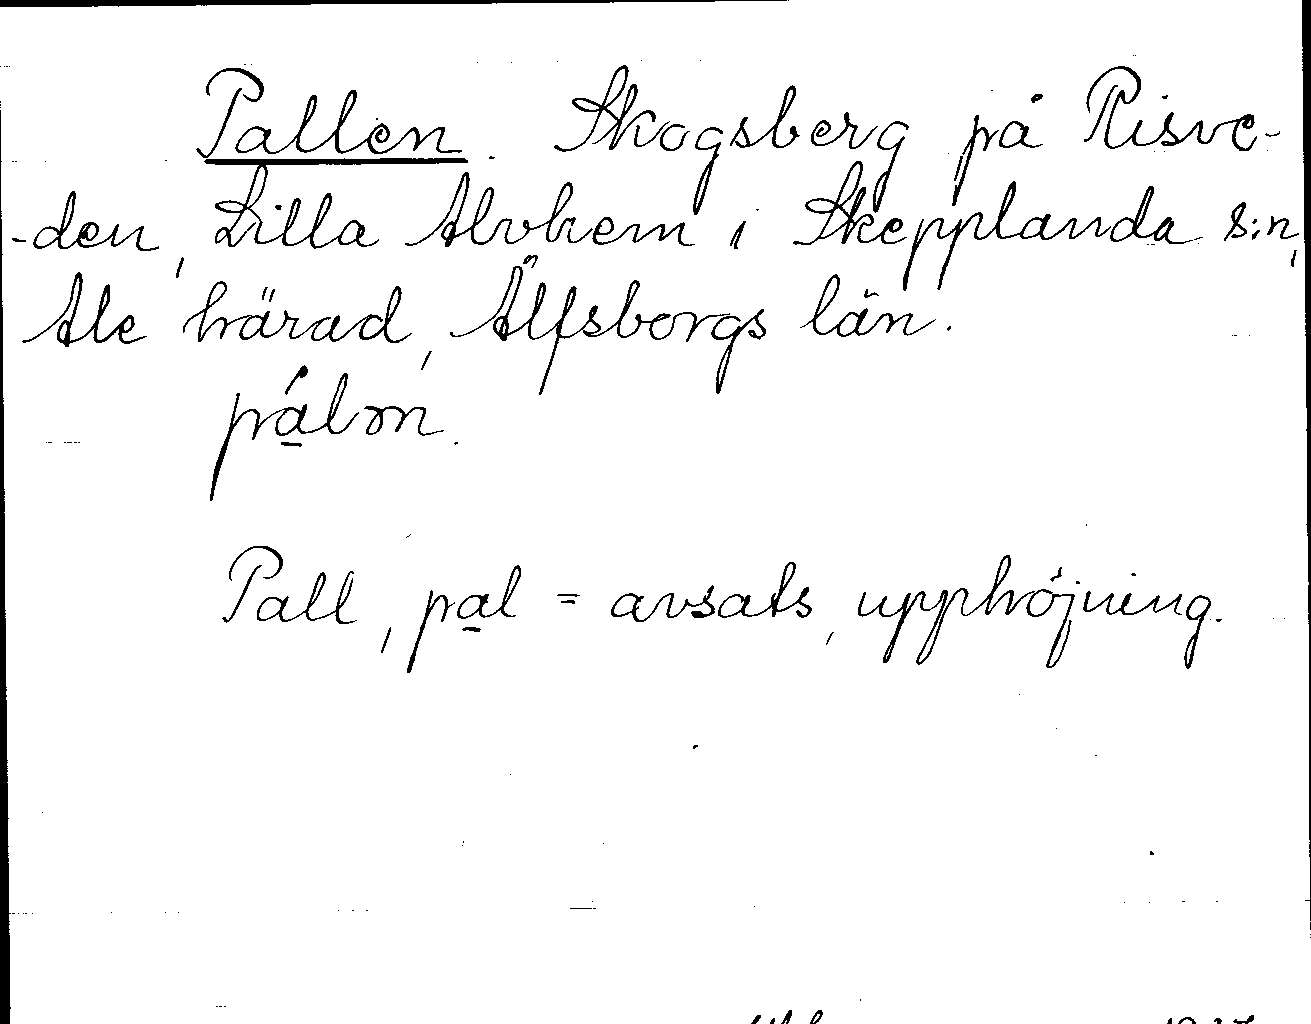 Pallen. Skogsberg på Risve-
-den, Lilla Alvhem i Skepplanda s:n,
Ale härad, Älfsborgs län.
pál̠ən.
Pall, pa̠l = avsats, upphöjning.